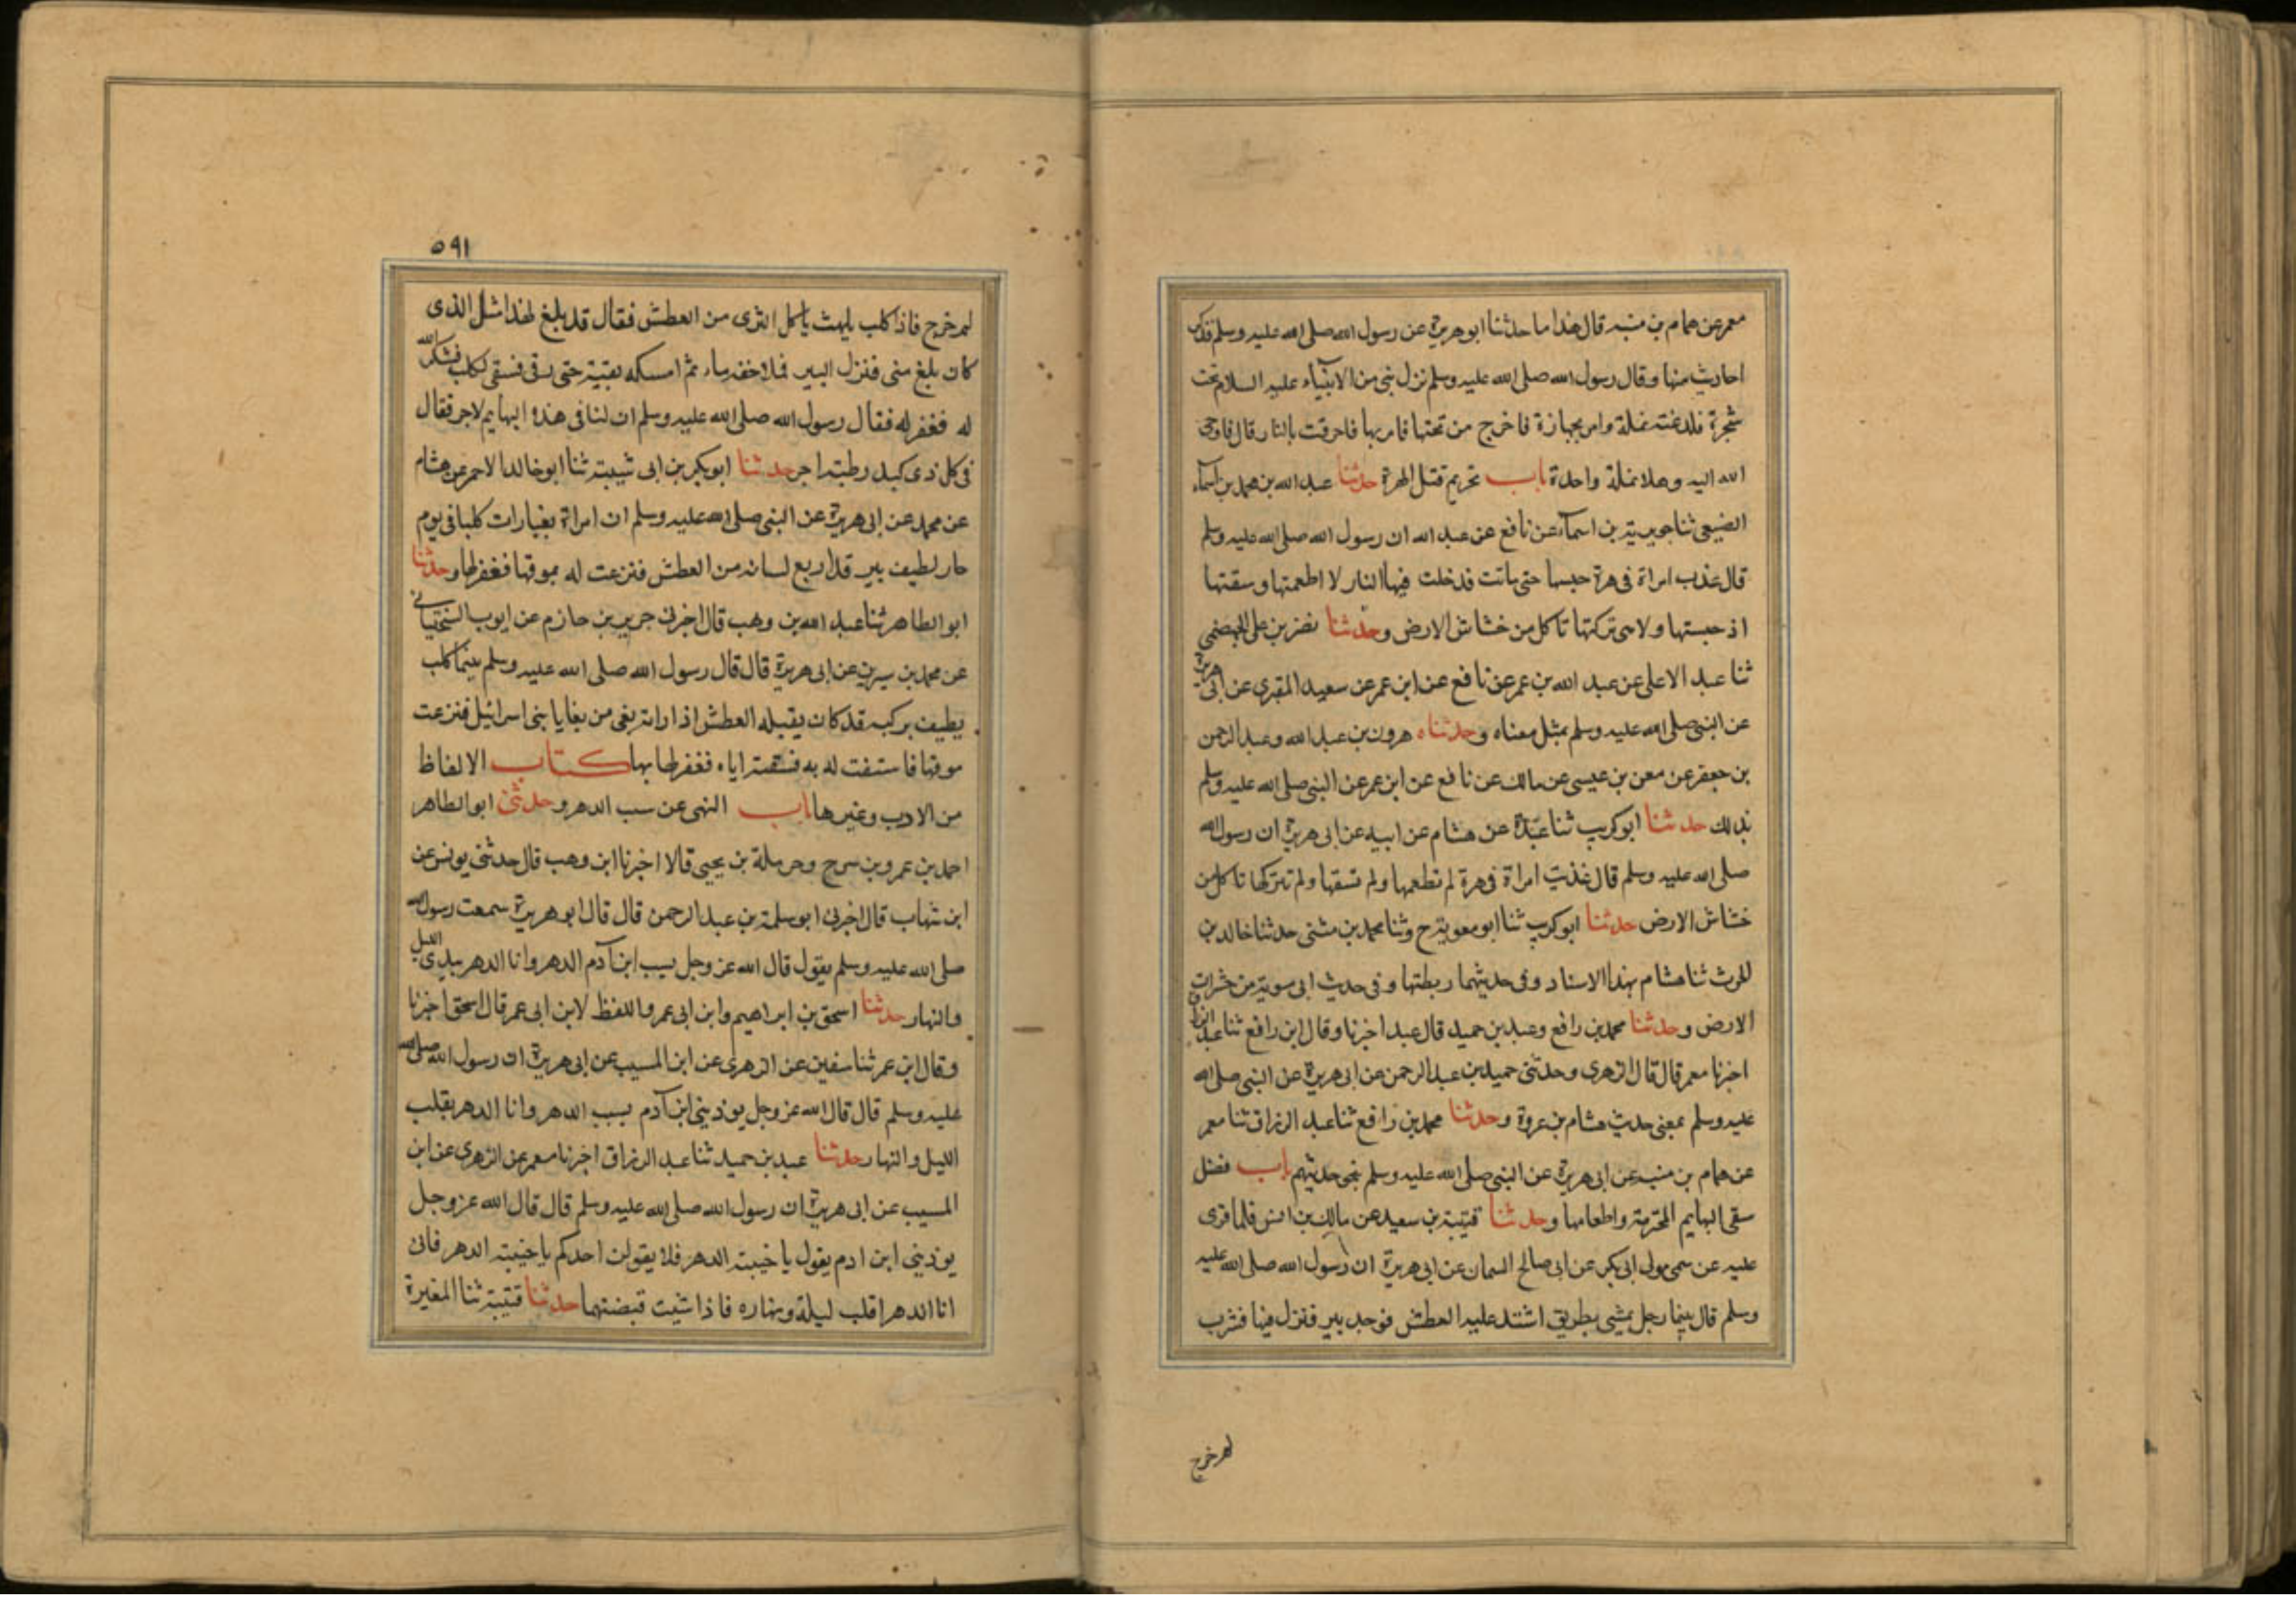 معمر عن همام بن منبه قال هذا ما حدثنا ابو هريرة عن رسول الله صلى الله عليه وسلم فذكر
احاديث منها وقال رسول الله صلى الله عليه وسلم نزل نبي من الانبياء عليه السلام تحت
شجرة فلدغته نملة وامر بجهازة فاخرج من تحتها فامر بها فاحرقت بالنار قال فاوحى
الله اليه وهلا نملة واحدة باب تحريم قتل الهرة حدثنا عبد الله بن محمد بن اسماء
الضبعي ثنا جويرية بن اسماء عن نافع عن عبد الله ان رسول الله صلى الله عليه وسلم
قال عذب امراة في هرة حبسها حتى ماتت فدخلت فيها النار لا اطعمتها وسقتها
اذ حبستها ولا هى تركتها تاكل من خشاش الارض وحدثنا نضر بن على الجهضمي
ثنا عبد الاعلى عن عبد الله بن عمر عن نافع عن ابن عمر عن سعيد المقبرى عن ابى هريرة
عن النبى صلى الله عليه وسلم بمثل معناه وحدثناه هرون بن عبد الله وعبد الرحمن
بن جعفر عن معن بن عيسى عن مالك عن نافع عن ابن عمر عن النبى صلى الله عليه وسلم
بذلك حدثنا ابو كريب ثنا عبدة عن هشام عن ابيه عن ابى هريرة ان رسول الله
صلى الله عليه وسلم قال عذبت امراة فى هرة لم تطعمها ولم تسقها ولم تتركها تاكل من
خشاش الارض حدثنا ابو كريب ثنا ابو معوية ح وثنا محمد بن مثنى حدثنا خالد بن
الحرث ثنا هشام بهذا الاسناد وفى حديثهما ربطتها وفى حديث ابى معوية من حشرات
الارض وحدثنا محمد بن رافع وعبد بن حميد قال عبد اخبرنا وقال ابن رافع ثنا عبد الرزاق
اخبرنا معمر قال قال الزهرى وحدثنى حميد بن عبد الرحمن عن ابى هريرة عن النبى صلى الله
عليه وسلم بمعنى حديث هشام بن عروة وحدثنا محمد بن رافع ثنا عبد الرزاق ثنا معمر
عن همام بن منبه عن ابى هريرة عن النبى صلى الله عليه وسلم نحو حديثهم باب فضل
سقى البهايم المحترمة واطعامها وحدثنا قتيبة بن سعيد عن مالك بن انس فلما قرى
عليه عن سمى مولى ابى بكر عن ابى صالح السمان عن ابى هريرة ان رسول الله صلى الله عليه
وسلم قال بينما رجل يمشى بطريق اشتد عليه العطش فوجد بير فنزل فيها فشرب
لم خرج
٥٩١
لم خرج فاذا كلب يلهث ياكل الثرى من العطش فقال قد بلغ لهذا مثل الذى
كان بلغ منى فنزل البير فملا خفه ماء ثم امسكه بفيه حتى رقى فسقى الكلب فشكر الله
له فغفر له فقال رسول الله صلى الله عليه وسلم ان لنا فى هذه البهايم لاجر فقال
فى كل ذى كبد رطبة اجر حدثنا ابو بكر بن ابى شيبة ثنا ابو خالد الاحمر عن هشام
عن محمد عن ابى هريرة عن النبى صلى الله عليه وسلم ان امراة بغيا رات كلبا فى يوم
حار لطيف بير قد اربع لسانه من العطش فنزعت له بموقها فغفر لها وحدثنا
ابو الطاهر ثنا عبد الله بن وهب قال اخبرنى جرير بن حازم عن ايوب السختيانى
عن محمد بن سيرين عن ابى هريرة قال قال رسول الله صلى الله عليه وسلم بينما كلب
يطيف بركيه قد كان يقتله العطش اذ اراته بغى من بغايا بنى اسرائيل فنزعت
موقها فاستقت له به فسقته اياه فغفر لها بها كتاب الالفاظ
من الادب وغيرها باب النهى عن سب الدهر وحدثنى ابو الطاهر
احمد بن عمرو بن سرح وحرملة بن يحيى قالا اخبرنا ابن وهب قال حدثنى يونس عن
ابن شهاب قال اخبرنى ابو سلمة بن عبد الرحمن قال قال ابو هريرة سمعت رسول الله
صلى الله عليه وسلم يقول قال الله عز وجل يسب ابن آدم الدهر وانا الدهر بيدى الليل
والنهار حدثنا اسحق بن ابراهيم وابن ابى عمر واللفظ لابن ابى عمر قال اسحق اخبرنا
وقال ابن عمر ثنا سفين عن الزهرى عن ابن المسيب عن ابى هريرة ان رسول الله صلى الله
عليه وسلم قال قال الله عز وجل يوذينى ابن آدم يسب الدهر وانا الدهر بقلب
الليل والنهار حدثنا عبد بن حميد ثنا عبد الرزاق اخبرنا معمر عن الزهرى عن ابن
المسيب عن ابى هريرة ان رسول الله صلى الله عليه وسلم قال قال الله عز وجل
يوذينى ابن ادم يقول يا خيبة الدهر فلا يقولن احدكم يا خيبة الدهر فانى
انا الدهر اقلب ليلة ونهاره فاذا شيت قبضتهما حدثنا قتيبة ثنا المغيرة